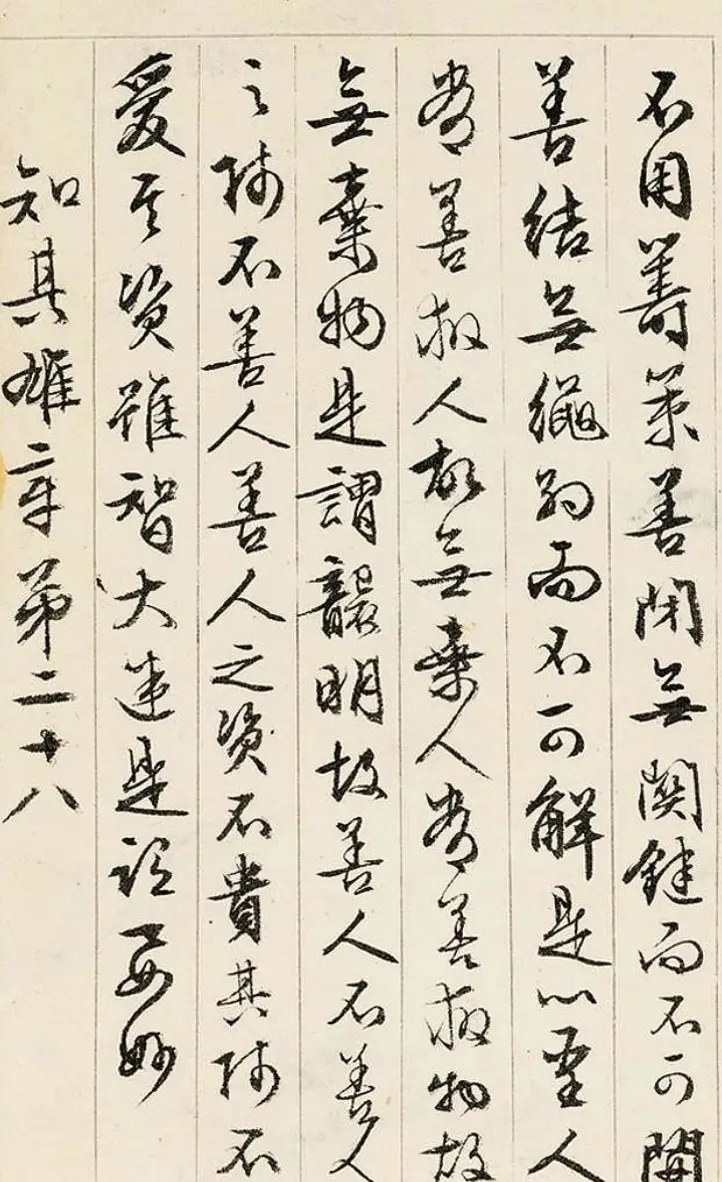 不用籌策善閉無關鍵而不可開
善結無繩約而不可解是以聖人
常善救人故無棄人常善救物故
無棄物是謂襲明故善人不善人
之師不善人善人之資不貴其師不
愛其資雖智大迷是謂要妙
知其雄章第二十八